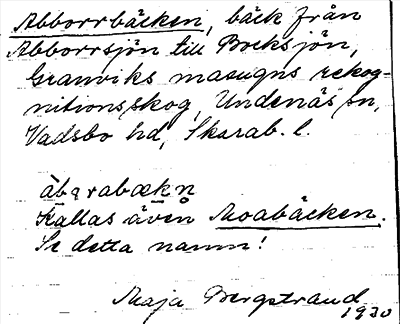 Abborrbäcken, bäck från
Abborrsjön till Bocksjön,
Granviks masugns rekog-
nitionsskog, Undenäs sn,
Vadsbo hd, Skarab. l.
àbərabækn
Kallas även Moabäcken.
Se detta namn!
Maja Bergstrand
1930